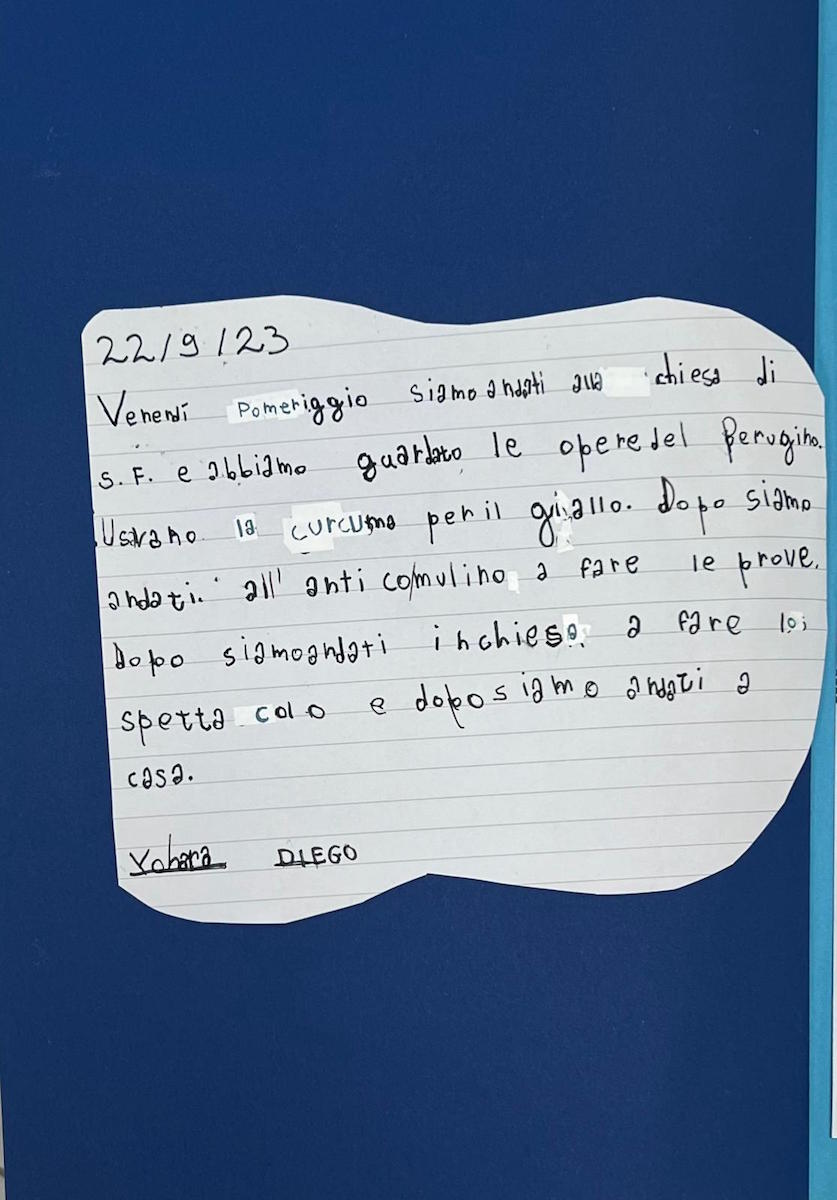 22/9/23
Venerdí Pomeriggio siamo andati alla chiesa di
S. F. e abbiamo guardato le opere del Perugino.
Usavano la curcuma per il giallo. Dopo siamo
andati all' anti comulino a fare le prove.
Dopo siamo andati in chiesa a fare lo
spetta colo e dopo siamo andati a
casa.
Yohara DIEGO